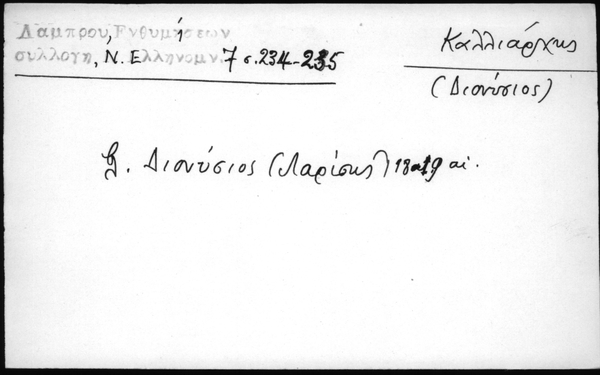 Λαμπρου, Ενθυμήσεων
συλλογη, Ν. Ελληνομν. 7 σ. 234-235
Καλλιάρχης
(Διονύσιος)
βλ. Διονύσιος (Λαρίσης) 18-19 αἰ.